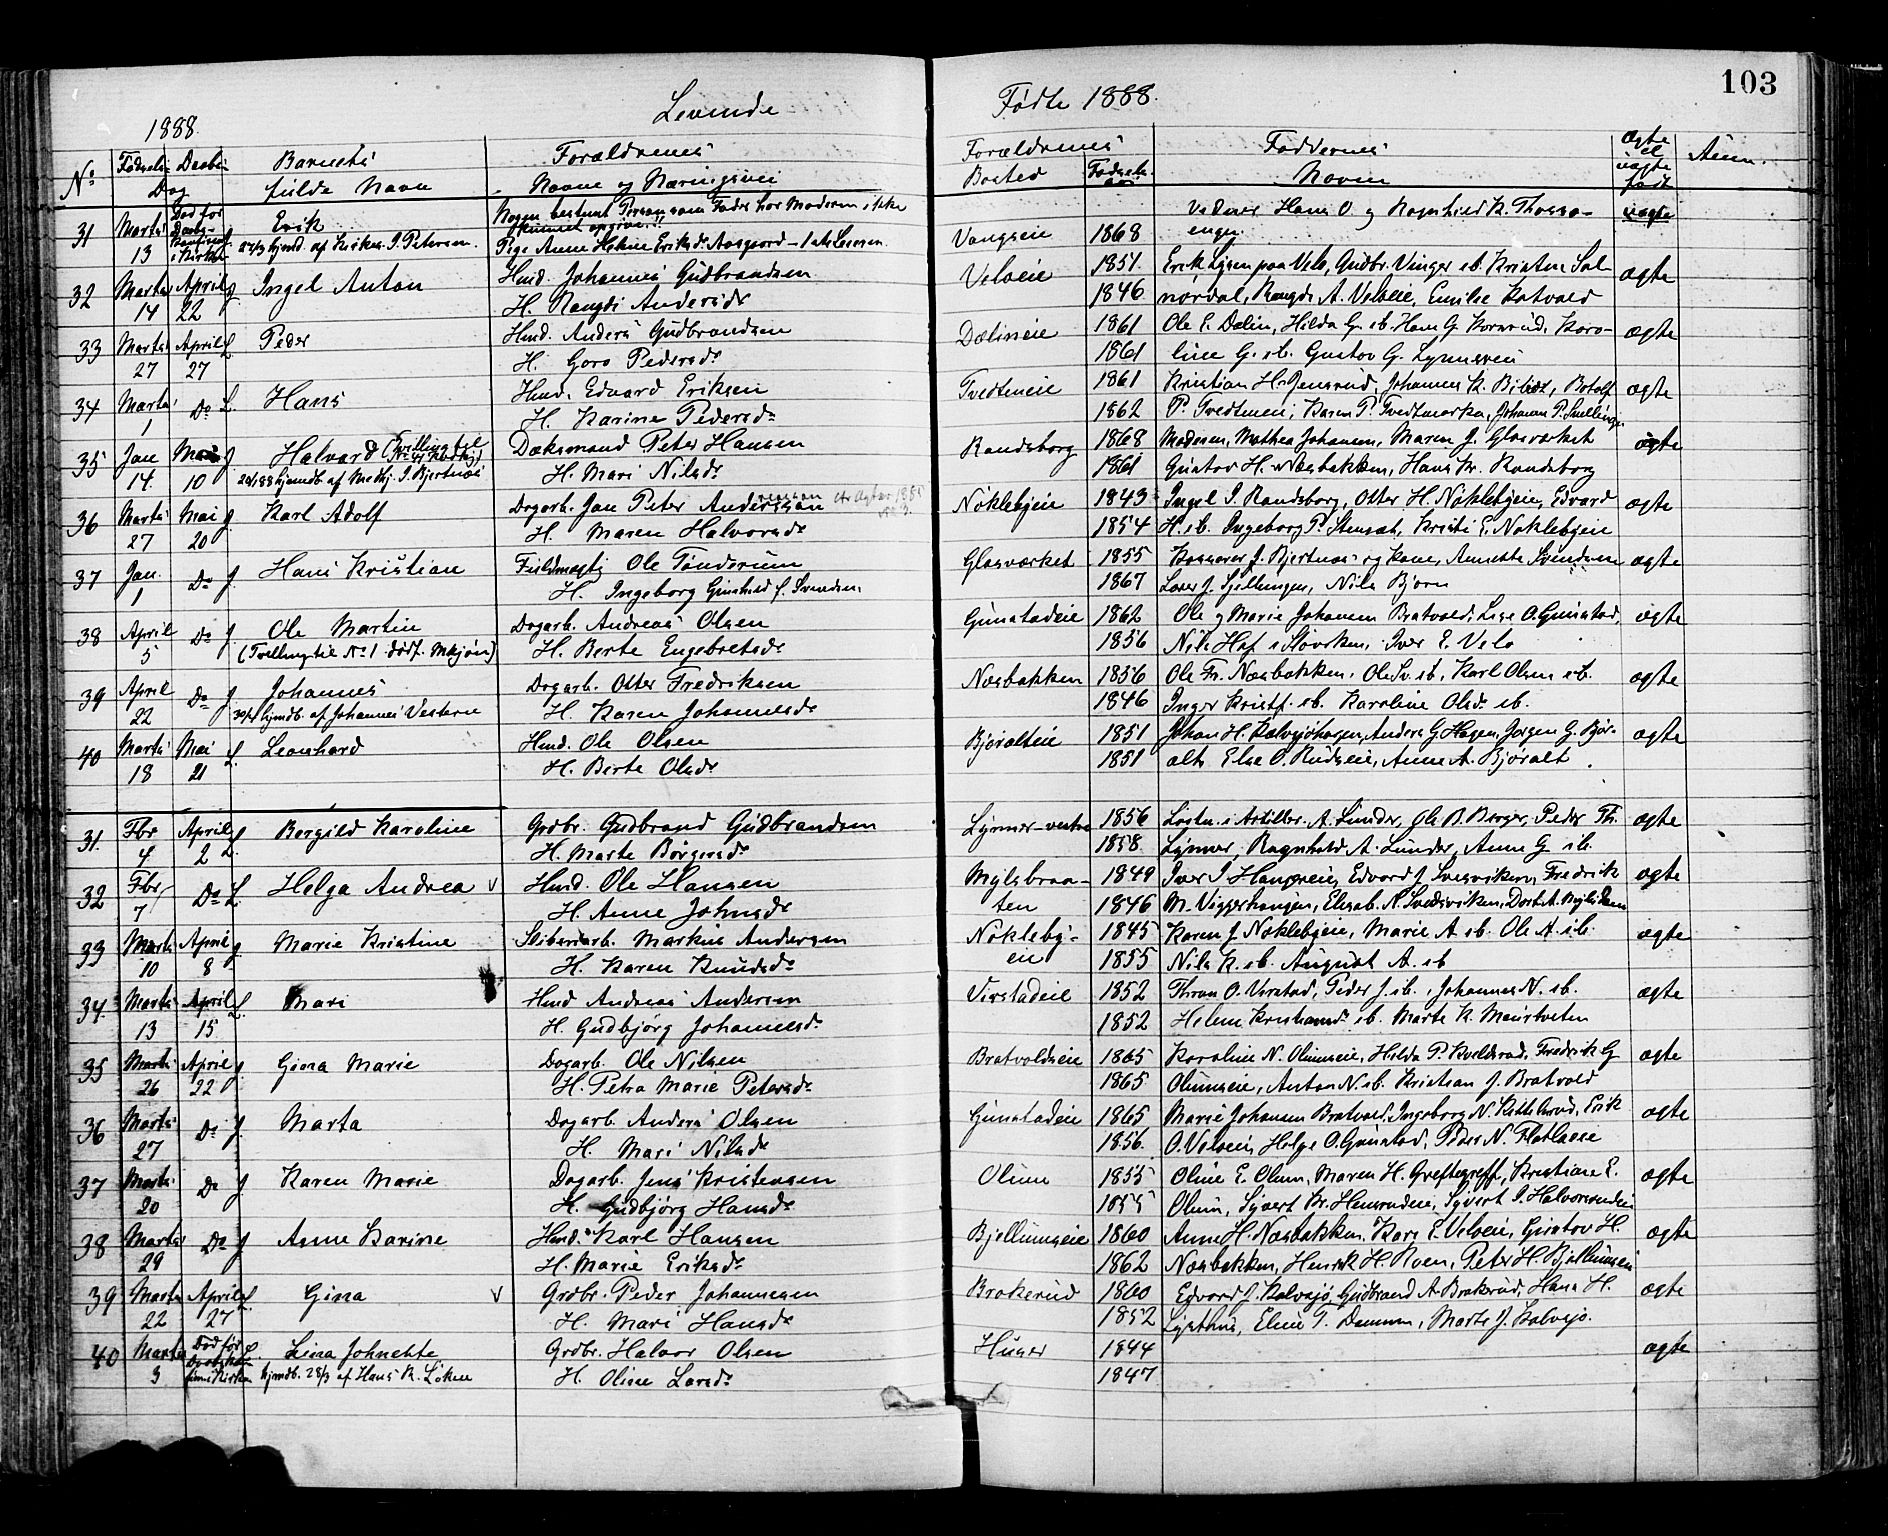 103
Levende Fødte 1888.
1888.
No Fødsels- Daabs- Dag
Barnets fulde Navn
Forældrenes Navne og Næringsvei
Forældrenes Bosted Fødselsaar
Faddernes Navne
ægte el uægte født
Anm.
31 Marts 13 Død før Daabs- i Kirken Erik
27/3 hjmd. af Kirkes. I Petersen.
Nogen bestemt Person som Fader har Moderen ikke kunnet opgive.
Pige Anne Helene Eriksdr Aasgaard
Vangseie 1868
Vidner Hans O. og Ragnhild K. Thorsengen
uægte
32 Marts 14 April 22 J. Ingel Anton
Husd. Johannes Gudbrandsen
H. Rangdi Andersdr
Veloeie 1851
1846
Erik Lysen paa Velo, Gudbr. Vinger sb. Kristen Sol-
nørdal, Rangdi A. Veloeie, Emilie Rotvold
ægte
33 Marts 27 April 27 L Peder
Husd. Anders Gudbrandsen
H. Goro Pedersdr
Dælineie 1861
1861
Ole E. Dælin, Hilda G. sb. Hans G. Kornrud, Karo-
line G. sb. Gustav G. Lynneseie
ægte
34 Marts 1 Do L. Hans
Husd. Edvard Eriksen
H. Karine Pedersdr
Tvedtmeie 1861
1862
Kristian H. Jensrud, Johannes K. Bilidt, Botolf
P. Tvedtmeie, Karen P. Tvedtmarka, Johanne P. Snellingen
ægte
35 Jan 14. Mai 10 J Halvard (Tvilling til
20/1 88 hjemdb. af Methj. I. Bjertnæs
Dæksmand Peter Hansen
H. Mari Nilsdr
Randsborg 1868
1861
Moderen, Mathea Johansen, Maren J. Glasværket
Gustav H. Næsbakken, Hans Kr. Randsborg
ægte
36 Marts 27 Mai 20 J Karl Adolf
Dagarb. Jan Peter Andersson
H. Maren Halvorsdr
Nøklebyeie 1843
1854
Ingel I. Randsborg, Otter H. Nøklebyeie, Edvard
H. sb. Ingeborg P. Stensæt, Kristi E. Nøklebyeie
ægte
37 Jan. 1 Do J. Hans Kristian
Fuldmægtig Ole Tønderum
H. Ingeborg Gunhild f. Svendsen
Glasværket 1855
1867
Kasserer J. Bjertnæs og Kone, Annette Svendsen
Lars J. Sjellungen, Nils Bjørn
ægte
38 April 5 Do J. Ole Martin
(Tvilling til No 1 dødf. Mkjøn)
Dagarb. Andreas Olsen
H. Berte Engebretsdr
Gunstadeie 1862
1856
Ole og Marie Johansen Bratvold, Lise O. Gunstad,
Nils Haf i Støvrken, Iver E. Velo
ægte
39 April 22 Do J. Johannes
30/4 hjmdb. af Johannes Vestern
Dagarb. Otter Fredriksen
H. Karen Johannesdr
Næsbakken 1856
1846
Ole Fr. Næsbakken, Ole Sv. sb, Karl Olsen sb.
Inger Kristf. sb. Karoline Olsdr sb.
ægte
40 Marts 18 Mai 21 L. Leonhard
Husd. Ole Olsen
H. Berte Olsdr
Bjøralteie 1851
1851
Johan H. Kalvsjøhagen, Anders G. Hagen, Jørgen G. Bjør-
alt, Else O. Rudseie, Anne A. Bjøralt.
ægte
31. Fbr 4 April 2 L. Bergild Karoline
Grdbr. Gudbrand Gudbrandsen
H. Marte Børgersdr
Lynner-vestre 1856
1858.
Løitn. i Artiller. A. Lunder, Ole B. Berger, Peder Th.
Lynner, Ragnhild A. Lunder, Anne G. sb.
ægte
32 Fbr 7 Do L. Helga Andrea v
Husd. Ole Hansen
H. Anne Johnsdr
Mylsbraa-
ten 1849
1846
Iver I. Hanseie, Edvard J. Svesviken, Fredrik
M. Viggerhaugen, Elisab. A. Svedsviken, Dort. A. Mylsbr.
ægte
33 Marts 10 April 8 J. Marie Kristine
Sliberiarb. Markus Andersen
H. Karen Knudsdr
Nøkleby-
eie 1845
1855
Karen J. Nøklebyeie, Marie A. sb. Ole A. sb.
Nils K. sb. August A. sb
ægte
34. Marts 13 April 15 L. Mari
Husd Andreas Andersen
H. Gudbjørg Johannesdr
Virstadeie 1852
1852
Thron O. Virstad, Peder J. sb., Johannes N. sb.
Helene Kristiansdr sb. Marte K. Meiertveten
ægte
35 Marts 26 April 22 J. Gina Marie
Dagarb. Ole Nilsen
H. Petra Marie Petersdr
Bratvoldseie 1865
1865
Karoline N. Olumseie, Hilda P. Kveldsrud, Fredrik G
Olumseie, Anton N. sb. Kristian J. Bratvold
ægte
36 Marts 27 Do J. Marta
Dagarb. Anders Olsen
H. Mari Nilsdr
Gunstadeie 1865
1856.
Marie Johansen Bratvold, Ingeborg N. Kittelsrud, Erik
O. Veloeie, Helge O. Gunstad, Peder N. Flatlaeie
ægte
37 Marts 20 Do J Karen Marie
Dagarb. Jens Kristensen
H. Gudbjørg Hansdr
Olum 1855
1855
Oline E. Olum, Maren H. Greftegreff, Kristiane E.
Olum, Syvert Kr. Hennrudeie, Syvert I. Halvorsrudeie
ægte
38 Marts 29 Do J Anne Karine
Husd. Karl Hansen
H. Marie Eriksdr
Bjellumseie 1860
1862
Anne H. Næsbakken, Kari E. Veloeie, Gustav H.
Næsbakken, Henrik H. Roen, Peter H. Bjellumseie
ægte
39 Marts 22 April 27 L. Gina v
Grdbr. Peder Johannesen
H. Mari Hansdr
Brakerud 1860
1852
Edvard J. Kalvsjø, Gudbrand A. Brakrud, Hans H.
Lysthus, Eline T. Dammen, Marte J. Kalvsjø.
ægte
40 Marts 3 Død før Lina Johnette
hjmdb. 28/3 af Hans K. Løken
Grdbr. Halvor Olsen
H. Oline Larsdr
Huser 1844
1847
ægte